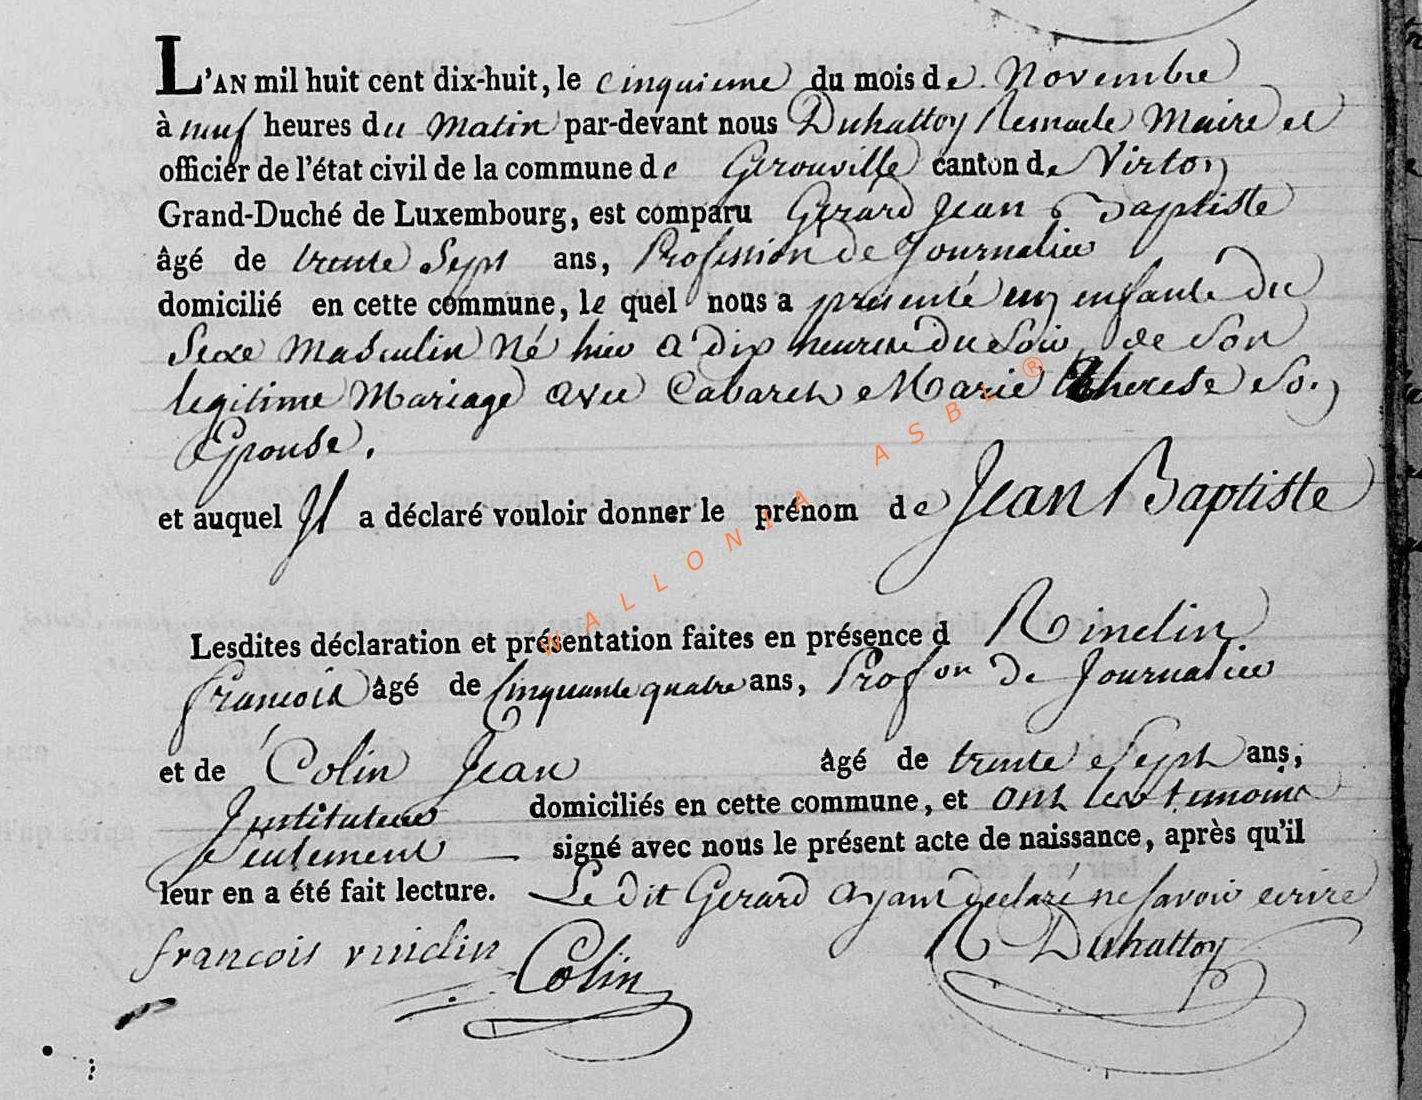 L'AN mil huit cent dix-huit, le cinquieme du mois de Novembre
à neuf heures du Matin par-devant nous Duhattoy Remacle Maire et
officier de l'état civil de la commune de Gerouville canton de Virton
Grand-Duché de Luxembourg, est comparu Gerard Jean Baptiste
âgé de trente Sept ans, Profession de Journalier
domicilié en cette commune, le quel nous a présenté un enfant Du
Sexe Masculin Né hier a Dix heures Du Soir de Son
legitime Mariage avec Cabaret Marie Therese Son
Epouse.
et auquel Il a déclaré vouloir donner le prénom de Jean Baptiste
Lesdites déclaration et présentation faites en présence d Rindin
francois âgé de Cinquante quatre ans, Profon De Journalier
et de Colin Jean âgé de trente Sept ans,
Instituteur domiciliés en cette commune, et ont les temoins
Seulement signé avec nous le présent acte de naissance, après qu'il
leur en a été fait lecture. Le Dit Gerard ayant declaré ne savoir ecrire
francois rindin Colin R Duhattoy
WALLONIA ASBL ®